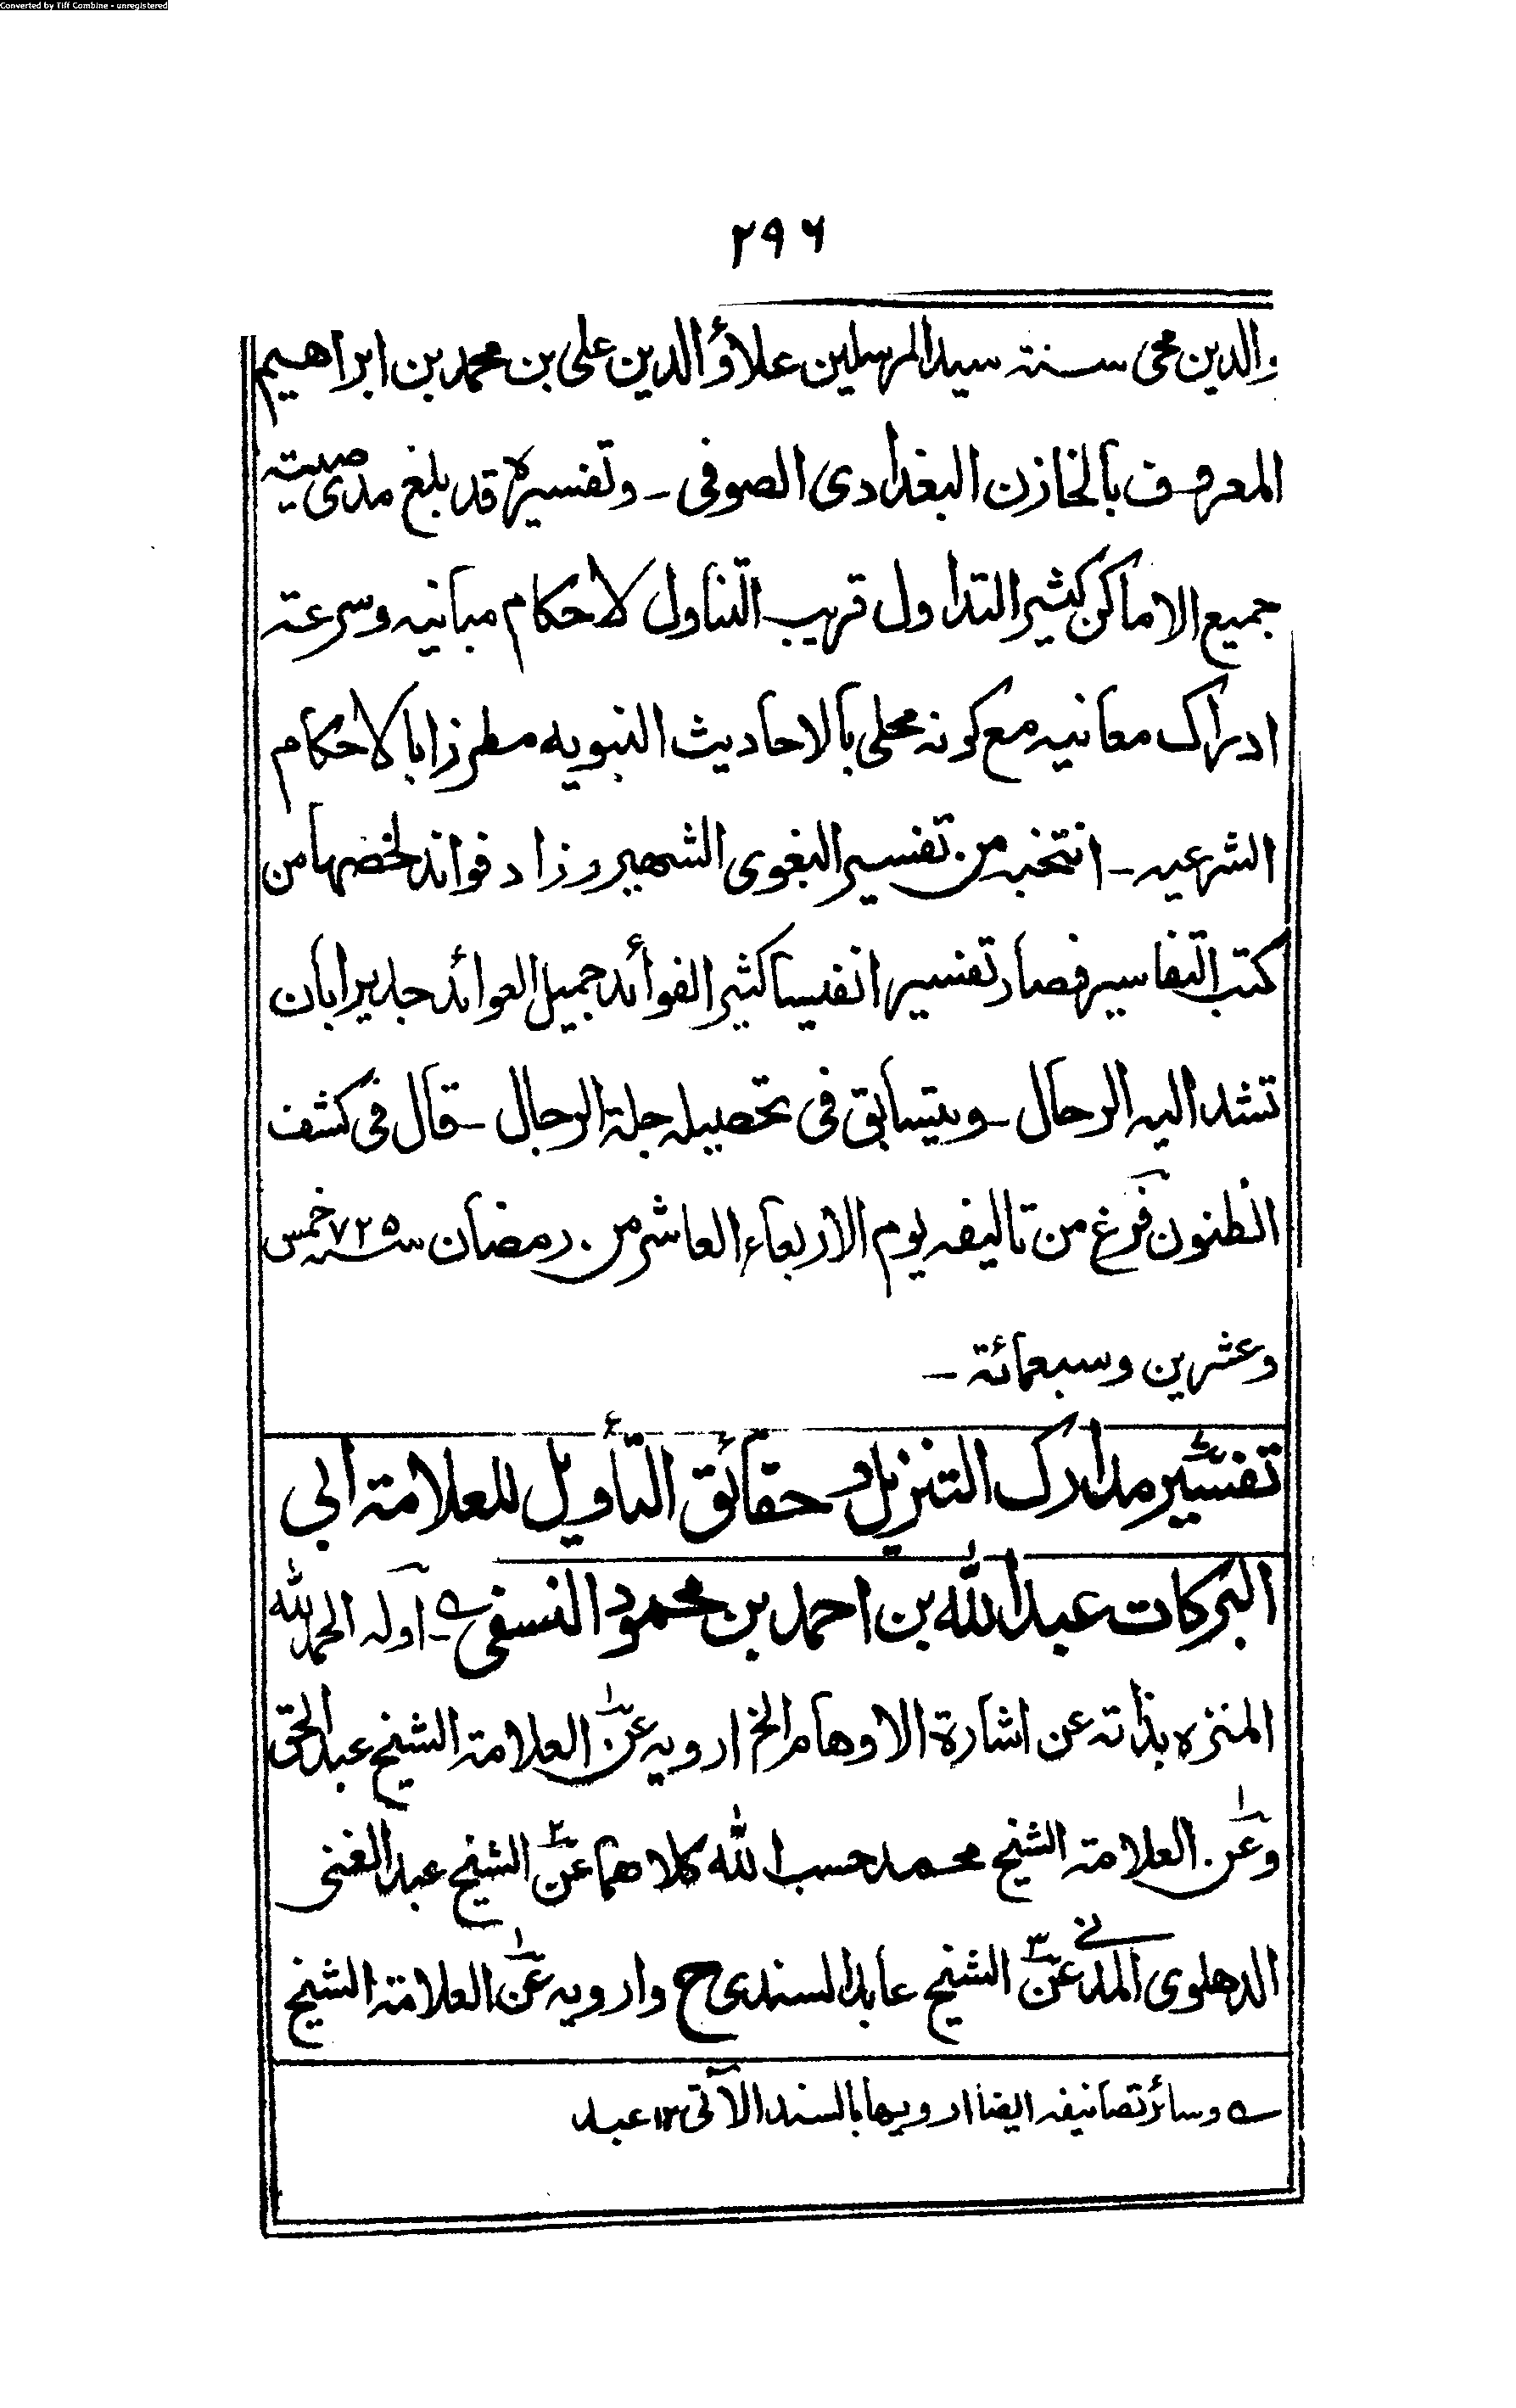 Converted by Tiff Combine - unregistered
٢٩٦
والدين محى سنة سيد المرسلين علاؤ الدين على بن محمد بن ابراهيم
المعروف بالخازن البغدادى الصوفى ـ وتفسيره قد بلغ مدى صيته
جميع الاماكن كثير التداول قريب التناول لاحكام مبانيه وسرعة
ادراك معانيه مع كونه محلى بالاحاديث النبويه مطرزا بالاحكام
الشرعيه ـ انتخبه من تفسير البغوى الشهير وزاد فوائد لخصها من
كتب التفاسير فصار تفسيرا نفيسا كثير الفوائد جميل العوائد جديرا بان
تشد اليه الرحال ـ ويتسابق فى تحصيله جلة الرجال ـ قال فى كشف
الظنون فرغ من تاليفه يوم الاربعاء العاشر من رمضان سنه ٧٢٥ خمس
وعشرين وسبعمائة ـ
تفسير مدارك التنزيل وحقائق التأويل للعلامة ابى
البركات عبد الله بن احمد بن محمود النسفى ـ اوله الحمد لله
المنزه بذاته عن اشارة الاوهام الخ ارويه عن العلامة الشيخ عبد الحق
١
وعن العلامة الشيخ محمد حسب الله كلاهما عن٢ الشيخ عبد الغنى
الدهلوى المدنى عن٣ الشيخ عابد السندى ح وارويه عن١ العلامة الشيخ
ے وسائر تصانيفه ايضا ارويها بالسند الآتى ١٢ عبد